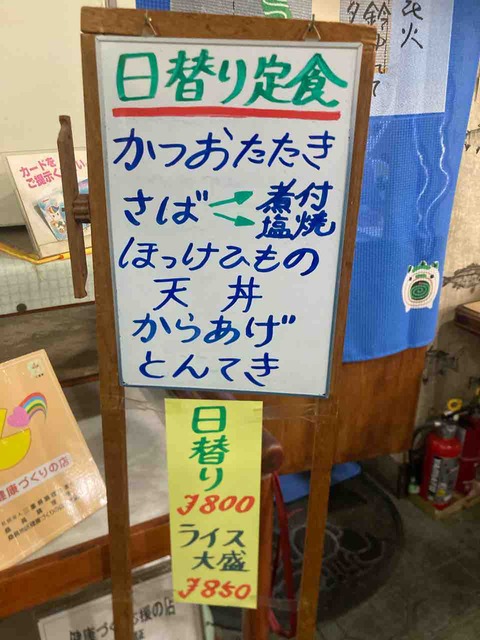 日替り定食
かつおたたき
さば 煮付
塩焼
ほっけひもの
天丼
からあげ
とんてき
日替り
¥800
ライス
大盛
¥850
カードを
ご提示く
健康づくりの店